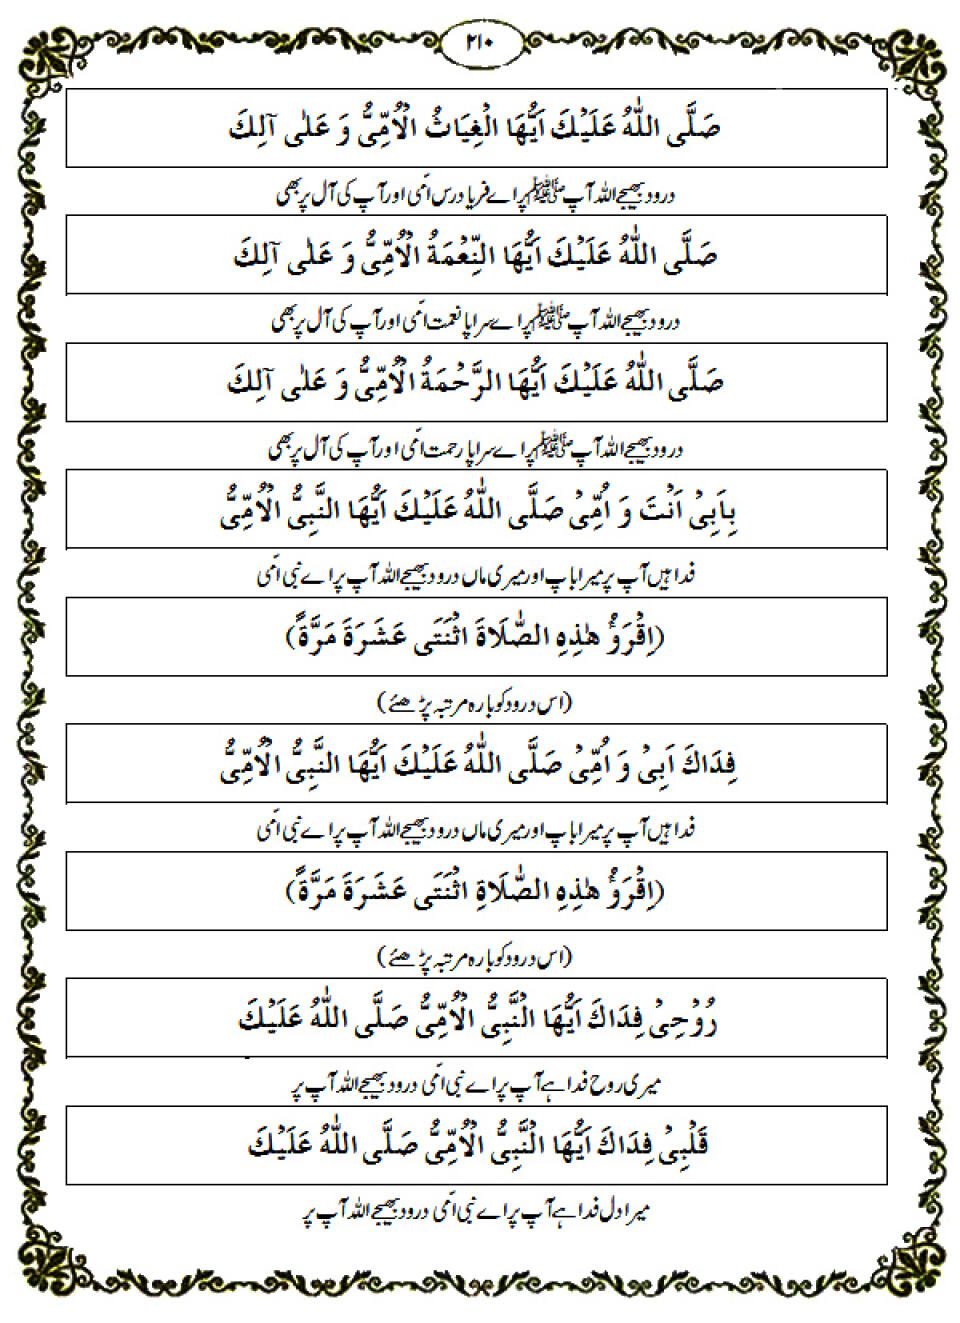 ۲۱۰
صَلَّى اللّٰهُ عَلَيْكَ اَيُّهَا الْغِيَاثُ الْاُمِّيُّ وَ عَلٰى آلِكَ
درود بھیجے اللہ آپ ﷺ پر اے فریاد رس امّی اور آپ کی آل پر بھی
صَلَّى اللّٰهُ عَلَيْكَ اَيُّهَا النِّعْمَةُ الْاُمِّيُّ وَ عَلٰى آلِكَ
درود بھیجے اللہ آپ ﷺ پر اے سراپا نعمت امّی اور آپ کی آل پر بھی
صَلَّى اللّٰهُ عَلَيْكَ اَيُّهَا الرَّحْمَةُ الْاُمِّيُّ وَ عَلٰى آلِكَ
درود بھیجے اللہ آپ ﷺ پر اے سراپا رحمت امّی اور آپ کی آل پر بھی
بِاَبِيْ اَنْتَ وَ اُمِّيْ صَلَّى اللّٰهُ عَلَيْكَ اَيُّهَا النَّبِيُّ الْاُمِّيُّ
فدا ہیں آپ پر میرا باپ اور میری ماں درود بھیجے اللہ آپ پر اے نبی امّی
(اِقْرَؤُ هٰذِهِ الصَّلَاةَ اثْنَتَى عَشَرَةَ مَرَّةً)
(اس درود کو بارہ مرتبہ پڑھئے)
فِدَاكَ اَبِيْ وَ اُمِّيْ صَلَّى اللّٰهُ عَلَيْكَ اَيُّهَا النَّبِيُّ الْاُمِّيُّ
فدا ہیں آپ پر میرا باپ اور میری ماں درود بھیجے اللہ آپ پر اے نبی امّی
(اِقْرَؤُ هٰذِهِ الصَّلَاةِ اثْنَتَى عَشَرَةَ مَرَّةً)
(اس درود کو بارہ مرتبہ پڑھئے)
رُوْحِيْ فِدَاكَ اَيُّهَا الْنَّبِيُّ الْاُمِّيُّ صَلَّى اللّٰهُ عَلَيْكَ
میری روح فدا ہے آپ پر اے نبی امّی درود بھیجے اللہ آپ پر
قَلْبِيْ فِدَاكَ اَيُّهَا الْنَّبِيُّ الْاُمِّيُّ صَلَّى اللّٰهُ عَلَيْكَ
میرا دل فدا ہے آپ پر اے نبی امّی درود بھیجے اللہ آپ پر